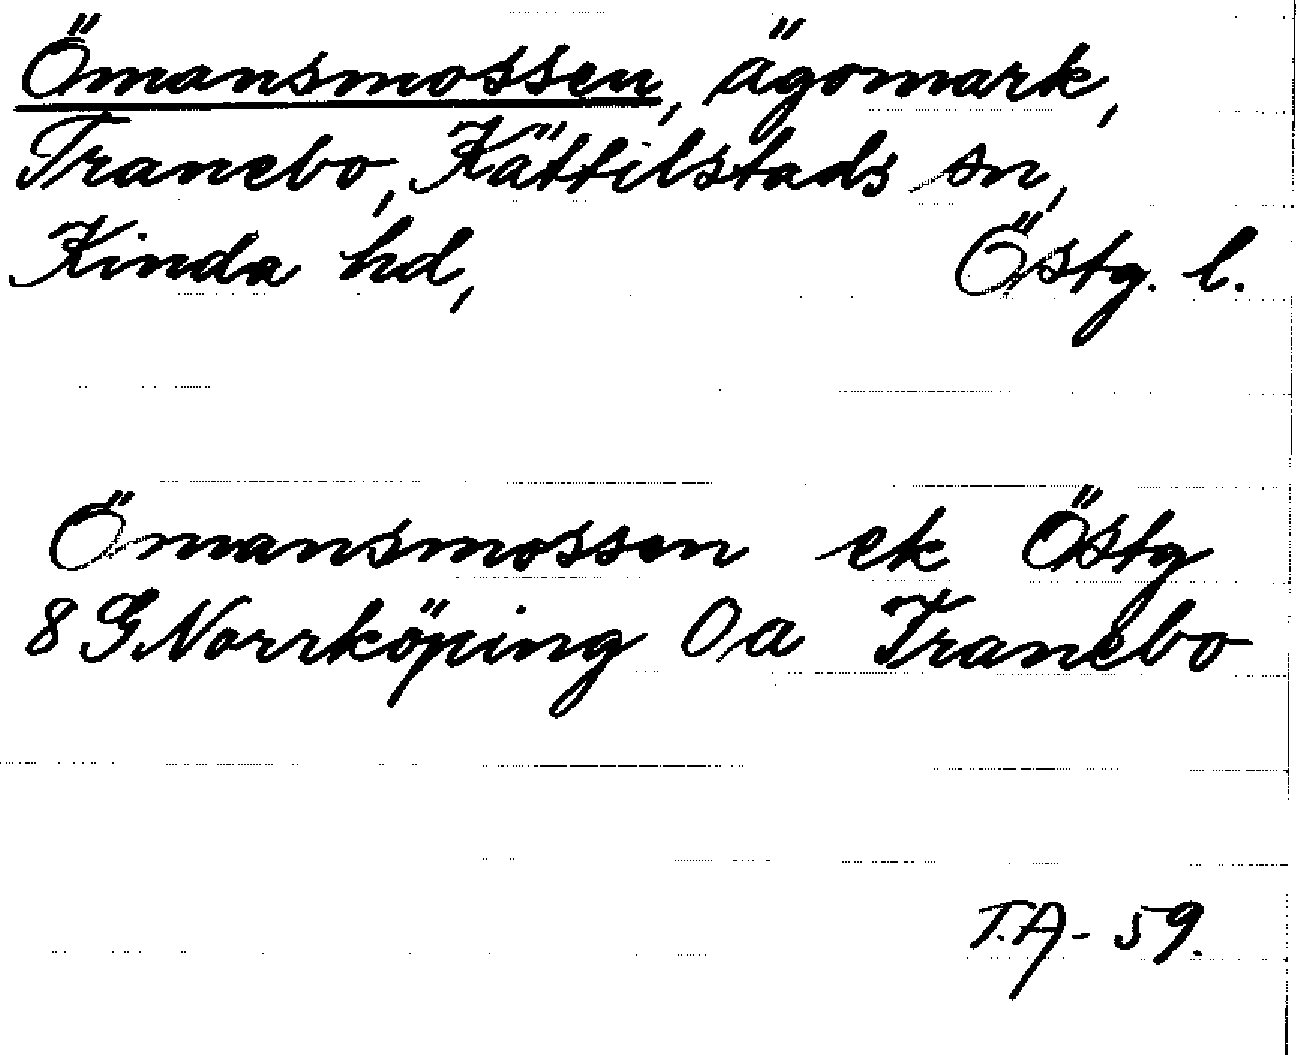 Ömansmossen, ägomark,
Tranebo, Kättilstads sn,
Kinda hd, Östg. l.
Ömansmossen ek Östg
8 G Norrköping 0/a Tranebo
T.A - 59.